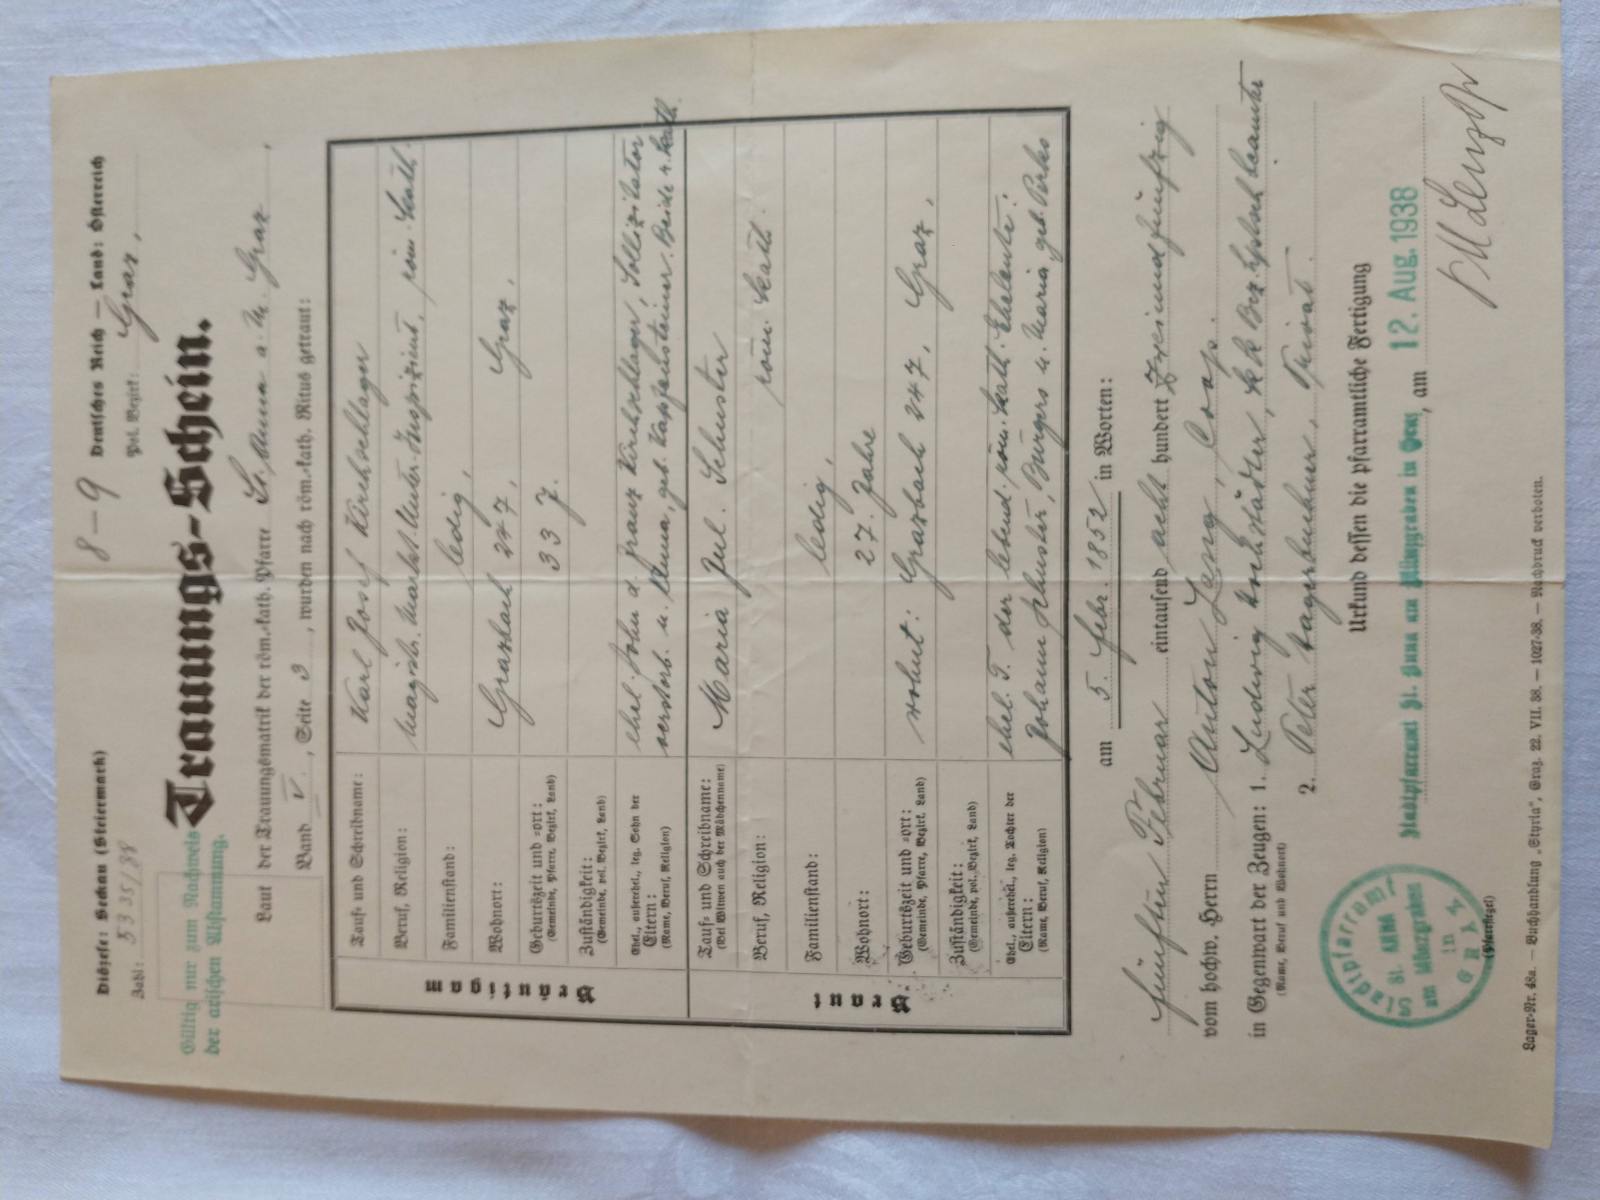 8–9
Diözese: Seckau (Steiermark)
Deutsches Reich — Land: Österreich
Zahl: 5335/38
Pol. Bezirk: Graz,
Trauungs-Schein.
Gültig nur zum Nachweis
der arischen Abstammung.
Laut der Trauungsmatrik der röm.-kath. Pfarre St. Anna a. M. Graz,
Band V., Seite 9, wurden nach röm.-kath. Ritus getraut:
Bräutigam
Tauf- und Schreibname: Karl Josef Kirchschlager
Beruf, Religion: magistr. Markt. Unter-Inspizient, röm. kath.
Familienstand: ledig,
Wohnort: Grazbach 247, Graz,
Geburtszeit und -ort: 33 J.
(Gemeinde, Pfarre, Bezirk, Land)
Zuständigkeit:
(Gemeinde, pol. Bezirk, Land)
Ehel., außerehel., leg. Sohn der ehel. Sohn d. Franz Kirchschlager, Sollizitator
Eltern: verstorb. u. Anna, geb. Kapfensteiner. Beide r. kath.
(Name, Beruf, Religion)
Braut
Tauf- und Schreibname: Maria Jul. Schuster
(Bei Witwen auch der Mädchenname)
Beruf, Religion: röm. kath.
Familienstand: ledig,
Wohnort: 27. Jahre
Geburtszeit und -ort: wohnt: Grazbach 247, Graz,
(Gemeinde, Pfarre, Bezirk, Land)
Zuständigkeit:
(Gemeinde, pol. Bezirk, Land)
Ehel., außerehel., leg. Tochter der ehel. T. der lebend. röm. kath. Eheleute:
Eltern: Johann Schuster, Bürgers u. Maria geb. Perko
(Name, Beruf, Religion)
am 5. Febr. 1852 in Worten:
fünften Februar eintausend acht hundert zweiundfünfzig
vom hochw. Herrn Anton Lang, Coop.
in Gegenwart der Zeugen: 1. Ludwig Hochstädter, k k Bez. beamter
(Name, Beruf und Wohnort)
2. Peter Privat.
Urkund dessen die pfarramtliche Fertigung
Stadtpfarramt St. Anna am Münzgraben in Graz, am 12. Aug. 1938
Stadtpfarramt
St. ANNA
am Münzgraben
in
GRAZ
(Pfarrsiegel)
Lager-Nr. 48a. — Buchhandlung „Styria“, Graz. 22. VII. 38. — 1027-38. — Nachdruck verboten.